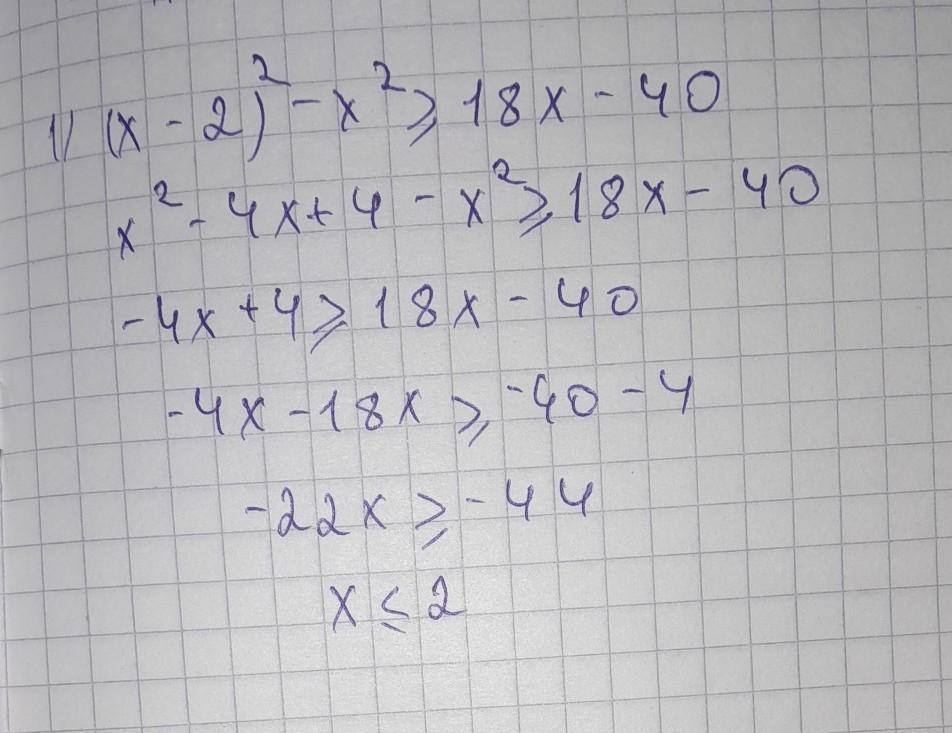 1) (x - 2)² - x² ⩾ 18x - 40
x² - 4x + 4 - x² ⩾ 18x - 40
-4x + 4 ⩾ 18x - 40
-4x - 18x ⩾ -40 - 4
-22x ⩾ -44
x ≤ 2